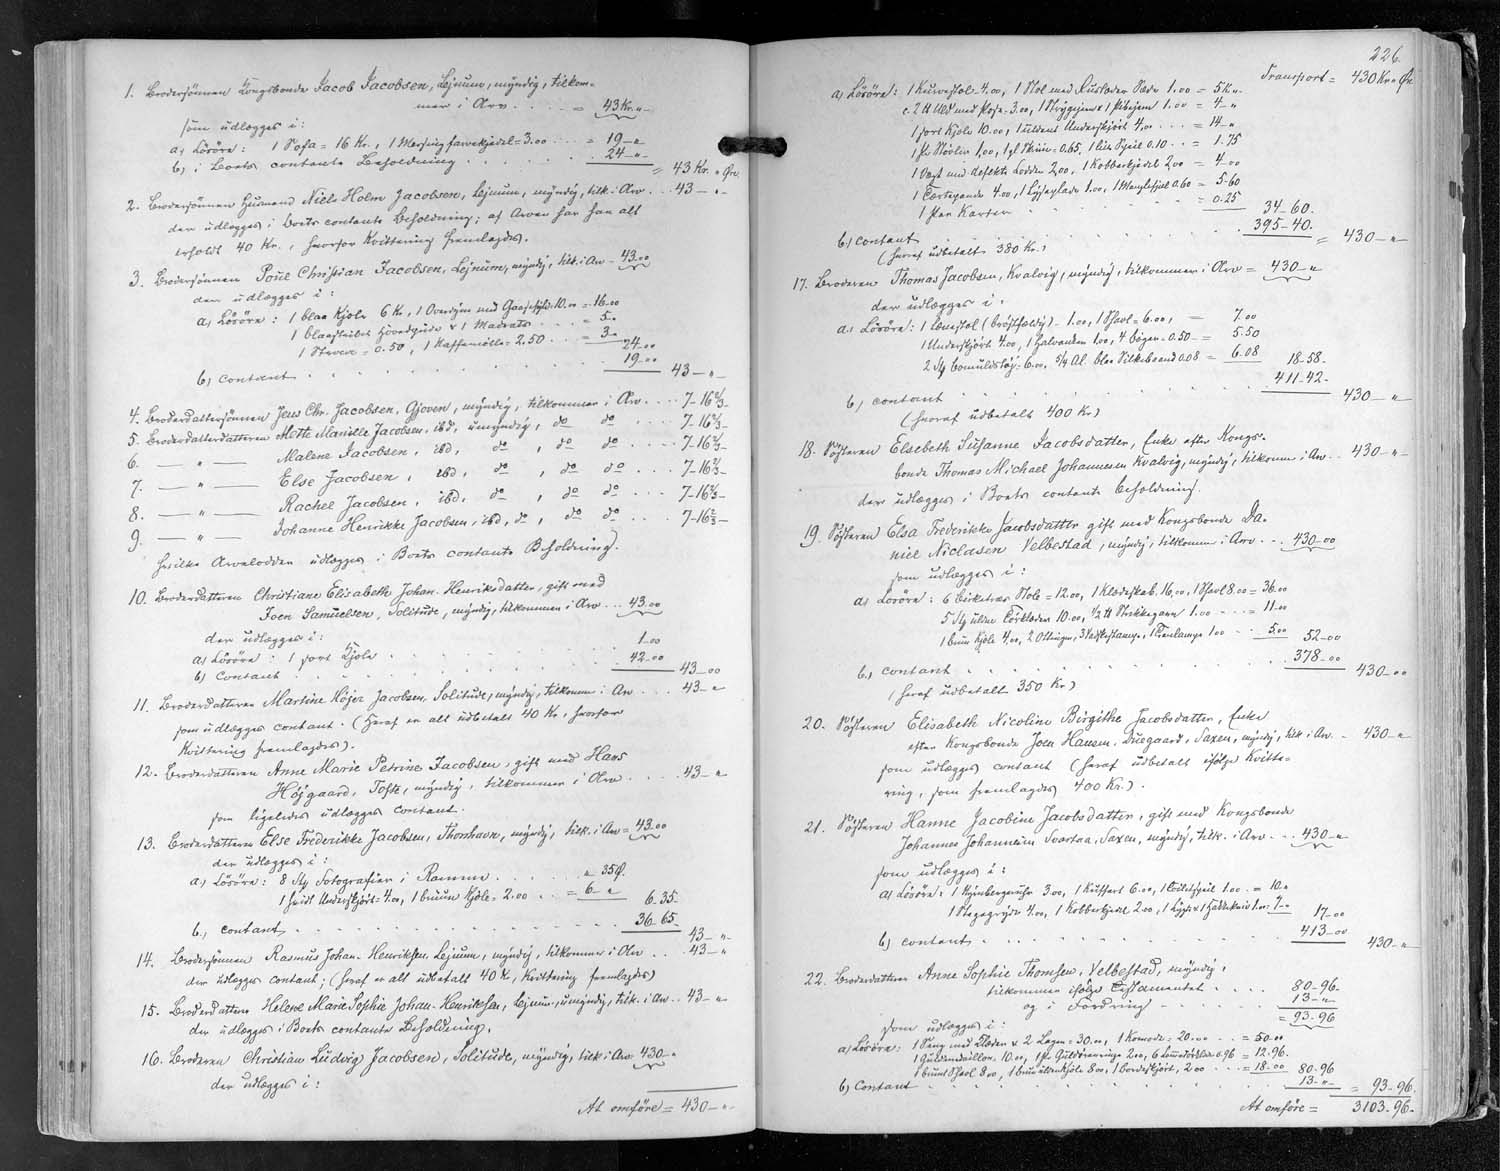 1. Brodersønnen Kongsbonde Jacob Jacobsen, Lejnum, myndig, tilkom-
mer i Arv . . . . = 43 Kr. "
som udlægges i:
a, Løsöre: 1 Sofa = 16 Kr, 1 Messing farvekjedel = 3.00 . . . = 19 – "
b, i Boets contante Beholdning . . . . . . 24 – "
= 43 Kr. " Øre
2. Brodersønnen Husmand Niels Holm Jacobsen, Lejnum, myndig, tilk. Arv . . 43 – "
der udlægges i Boets contante Beholdning; af Arven har han alt
erholdt 40 Kr., hvorfor Kvittering fremlagdes.
3. Brodersønnen Poul Christian Jacobsen, Lejnum, myndig, tilk. i Arv – 43.00
der udlægges i:
a, Løsöre: 1 blaa Kjole 6 Kr, 1 Overdyne med Gaasefjer 10.00 = 16.00
1 blaastribet Hovedpude & 1 Madrats . . . = 5 "
1 = 0.50, 1 Kaffemölle = 2.50 . . . = 3 "
24–00
b, contant . . . . . . 19–00
43 – "
4. Broderdattersønnen Jens Chr. Jacobsen, Gjoven, myndig, tilkommer i Arv . . . 7–16 2/3
5. Broderdatterdatteren Mette Marielle Jacobsen, ibd, umyndig, do do . . . 7–16 2/3
6. — " — Malene Jacobsen, ibd, do, do do . . . 7–16 2/3
7. — " — Else Jacobsen, ibd, do, do do . . . 7–16 2/3
8. — " — Rachel Jacobsen, ibd, do, do do . . . 7–16 2/3
9. — " — Johanne Henrikke Jacobsen, ibd, do, do do . . . 7–16 2/3
hvilke Arvelodder udlægges i Boets contante Beholdning.
10. Broderdatteren Christiane Elisabeth Johan-Henriksdatter, gift med
Joen Samuelsen, Solitude, myndig, tilkommer i Arv . . . 43.00
der udlægges i:
a, Løsöre: 1 sort Kjole . . . . . 1–00
b, contant . . . . . 42–00
43–00
11. Broderdatteren Martine Højer Jacobsen, Solitude, myndig, tilkommer i Arv . . . 43 – "
som udlægges contant. (heraf er alt udbetalt 40 Kr., hvorfor
Kvittering fremlagdes).
12. Broderdatteren Anne Marie Petrine Jacobsen, gift med Hans
Højgaard, Tofte, myndig, tilkommer i Arv . . . . 43 – "
som ligeledes udlægges contant.
13. Broderdatteren Else Frederikke Jacobsen, Thorshavn, myndig, tilk. i Arv = 43.00
der udlægges i:
a, Løsöre: 8 Stk Fotografier i Ramme . . . . . " 35 Ø.
1 hvidt Underskjørt = 4.00, 1 bruun Kjole = 2.00 . . = 6 – "
6.35
b, contant . . . . . . . 36–65
43 – "
14. Brodersønnen Rasmus Johan-Henriksen, Lejnum, myndig, tilkommer i Arv . . . 43 – "
der udlægges contant; (heraf er alt udbetalt 40 Kr, Kvittering fremlagdes)
15. Broderdatteren Helene Marie Sophie Johan-Henriksen, Lejnum, umyndig, tilk. i Arv . . 43 – "
der udlægges i Boets contante Beholdning.
16. Broderen Christian Ludvig Jacobsen, Solitude, myndig, tilk. i Arv 430 – "
der udlægges i:
At omføre = 430 – "
226.
Transport = 430 Kr " Ør
a, Løsöre: 1 Kurvestol 4.00, 1 Stol med Ruslæder Sæde 1.00 = 5 Kr. "
c. 2 ℔ Uld med Pose = 3.00, 1 Strygejern & 1 1.00 = 4 – "
1 sort Kjole 10.00, 1 uldent Underskjört 4,00 . . . = 14 – "
1 Pr Støvler 1,00, 1 gl = 0.65, 1 lile Spejl 0.10 . . = 1.75
1 Vægt med defekte Lodder 2,00, 1 Kobberkjedel 2.00 = 4–00
1 Tærtepande 4.00, 1 1.00, 1 0.60 = 5–60
1 Par Karter . . . . . . = 0.25
34–60.
b, contant . . . . . . 395–40.
= 430 – "
(heraf udbetalt 380 Kr.)
17. Broderen Thomas Jacobsen, Kvalvig, myndig, tilkommer i Arv = 430 – "
der udlægges i:
a, Løsöre: 1 Lænestol (brøstfældig) – 1.00, 1 Shavl = 6.00, = 7.00
1 Underskjört 4.00, 1 1.00, 4 bøger = 0.50 = 5.50
2 Stk Bomuldstøj = 6.00, 5/4 Al. blaa Silkebaand 0.08 = 6.08
18–58.
b, contant . . . . . . 411–42.
430 – "
(heraf udbetalt 400 Kr.)
18. Søsteren Elsebeth Susanne Jacobsdatter, Enke efter Kongs-
bonde Thomas Michael Johannesen Kvalvig, myndig, tilkomm. i Arv . . 430 – "
der udlægges i Boets contante Beholdning.
19. Søsteren Elsa Frederikke Jacobsdatter gift med Kongsbonde Da-
niel Niclasen Velbestad, myndig, tilkommer i Arv . . . 430–00
som udlægges i:
a, Løsöre: 6 Birketræs Stole = 12.00, 1 Klædeskab 16.00, 1 Shavl 8.00 = 36.00
5 Stk uldne Tørklæder 10.00, 1/2 ℔ Strikkegarn 1.00 . . . = 11–00
1 bruun Kjole 4,00, 2 , 3 , 1 1.00 . . . 5.00
52–00
b, contant . . . . . . 378–00
430–00
(heraf udbetalt 350 Kr.)
20. Søsteren Elisabeth Nicoline Birgithe Jacobsdatter, Enke
efter Kongsbonde Joen Hansen, Duegaard, Saxen, myndig, tilk. i Arv . – 430 – "
som udlægges contant (heraf udbetalt ifølge Kvitte-
ring, som fremlagdes 400 Kr.).
21. Søsteren Hanne Jacobine Jacobsdatter, gift med Kongsbonde
Johannes Johannesen Svartaa, Saxen, myndig, tilk. i Arv . . . 430 – "
som udlægges i:
a, Løsöre: 1 Nürnbergeruhr 3.00, 1 Kuffert 6.00, 1 Toiletspeil 1.00 = 10 "
1 Stegegryde 4.00, 1 Kobberkjedel 2.00, 1 & 1 Hakkekniv 1.00 7 – "
17–00
b, contant . . . . . . 413–00
430 – "
22. Broderdatteren Anne Sophie Thomsen, Velbestad, myndig,
tilkommer ifølge Testamentet . . . . 80–96.
og i Fordring . . . . 13 – "
= 93–96
som udlægges i:
a, Løsöre: 1 Seng med Klæder & 2 Lagen = 30.00, 1 Komode = 20.00 . . . = 50.00
1 Guldmedaillon 10.00, 1 Pr. Guldörenringe 2.00, 6 Lommetörklæder 0.96 = 12.96.
1 bruunt Shavl 8.00, 1 bruun ulden Kjole 8.00, 1 Bordskjört, 2.00 . . . = 18–00
80–96
b, contant . . . . . . 13 – "
= 93–96.
At omføre = 3103–96.